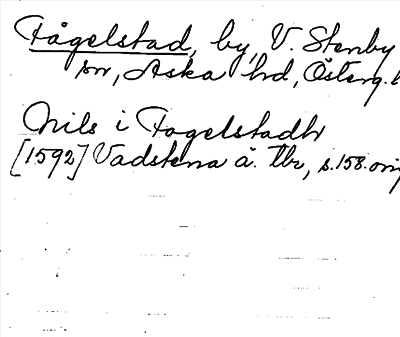 Fågelstad, by, V. Stenby
sn, Aska hd, Österg. l
Nils i Fogelstadh
[1592] Vadstena å. tbr, s. 158. orig